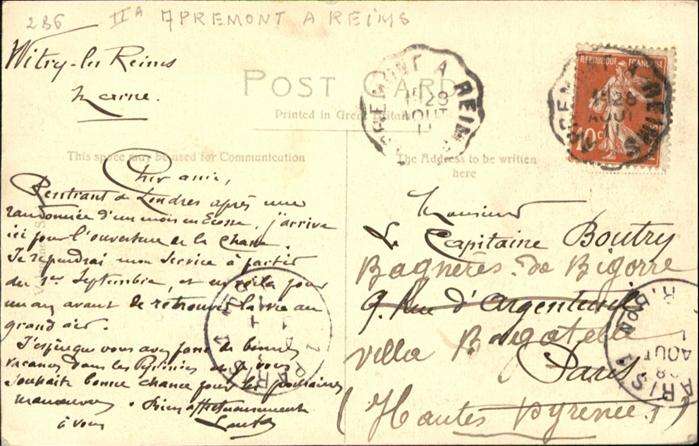 286 IIA APREMONT A REIMS
Witry-les Reims
Marne.
POST CARD
Printed in Great Britain
This space may be used for Communication
The Address to be written
here
REPUBLIQUE FRANÇAISE
10c
APREMONT A REIMS
29
AOUT
11
APREMONT A REIMS
28
AOUT
11
Cher ami,
Rentrant de Londres après une
randonnée d'un mois en Ecosse, j'arrive
ici pour l'ouverture de la Chasse.
Je reprendrai mon service à partir
du 1er Septembre, et en voilà pour
un an avant de retrouver la vie au
grand air.
J'espère que vous avez fait de bonnes
vacances dans les Pyrénées et je vous
souhaite bonne chance pour les prochaines
manœuvres. Bien affectueusement
à vous
Monsieur
Le Capitaine Boutry
9. Rue d'Argenteuil
Paris
Bagnères de Bigorre
villa Bagatelle
(Hautes Pyrénées)
PARIS
AOUT